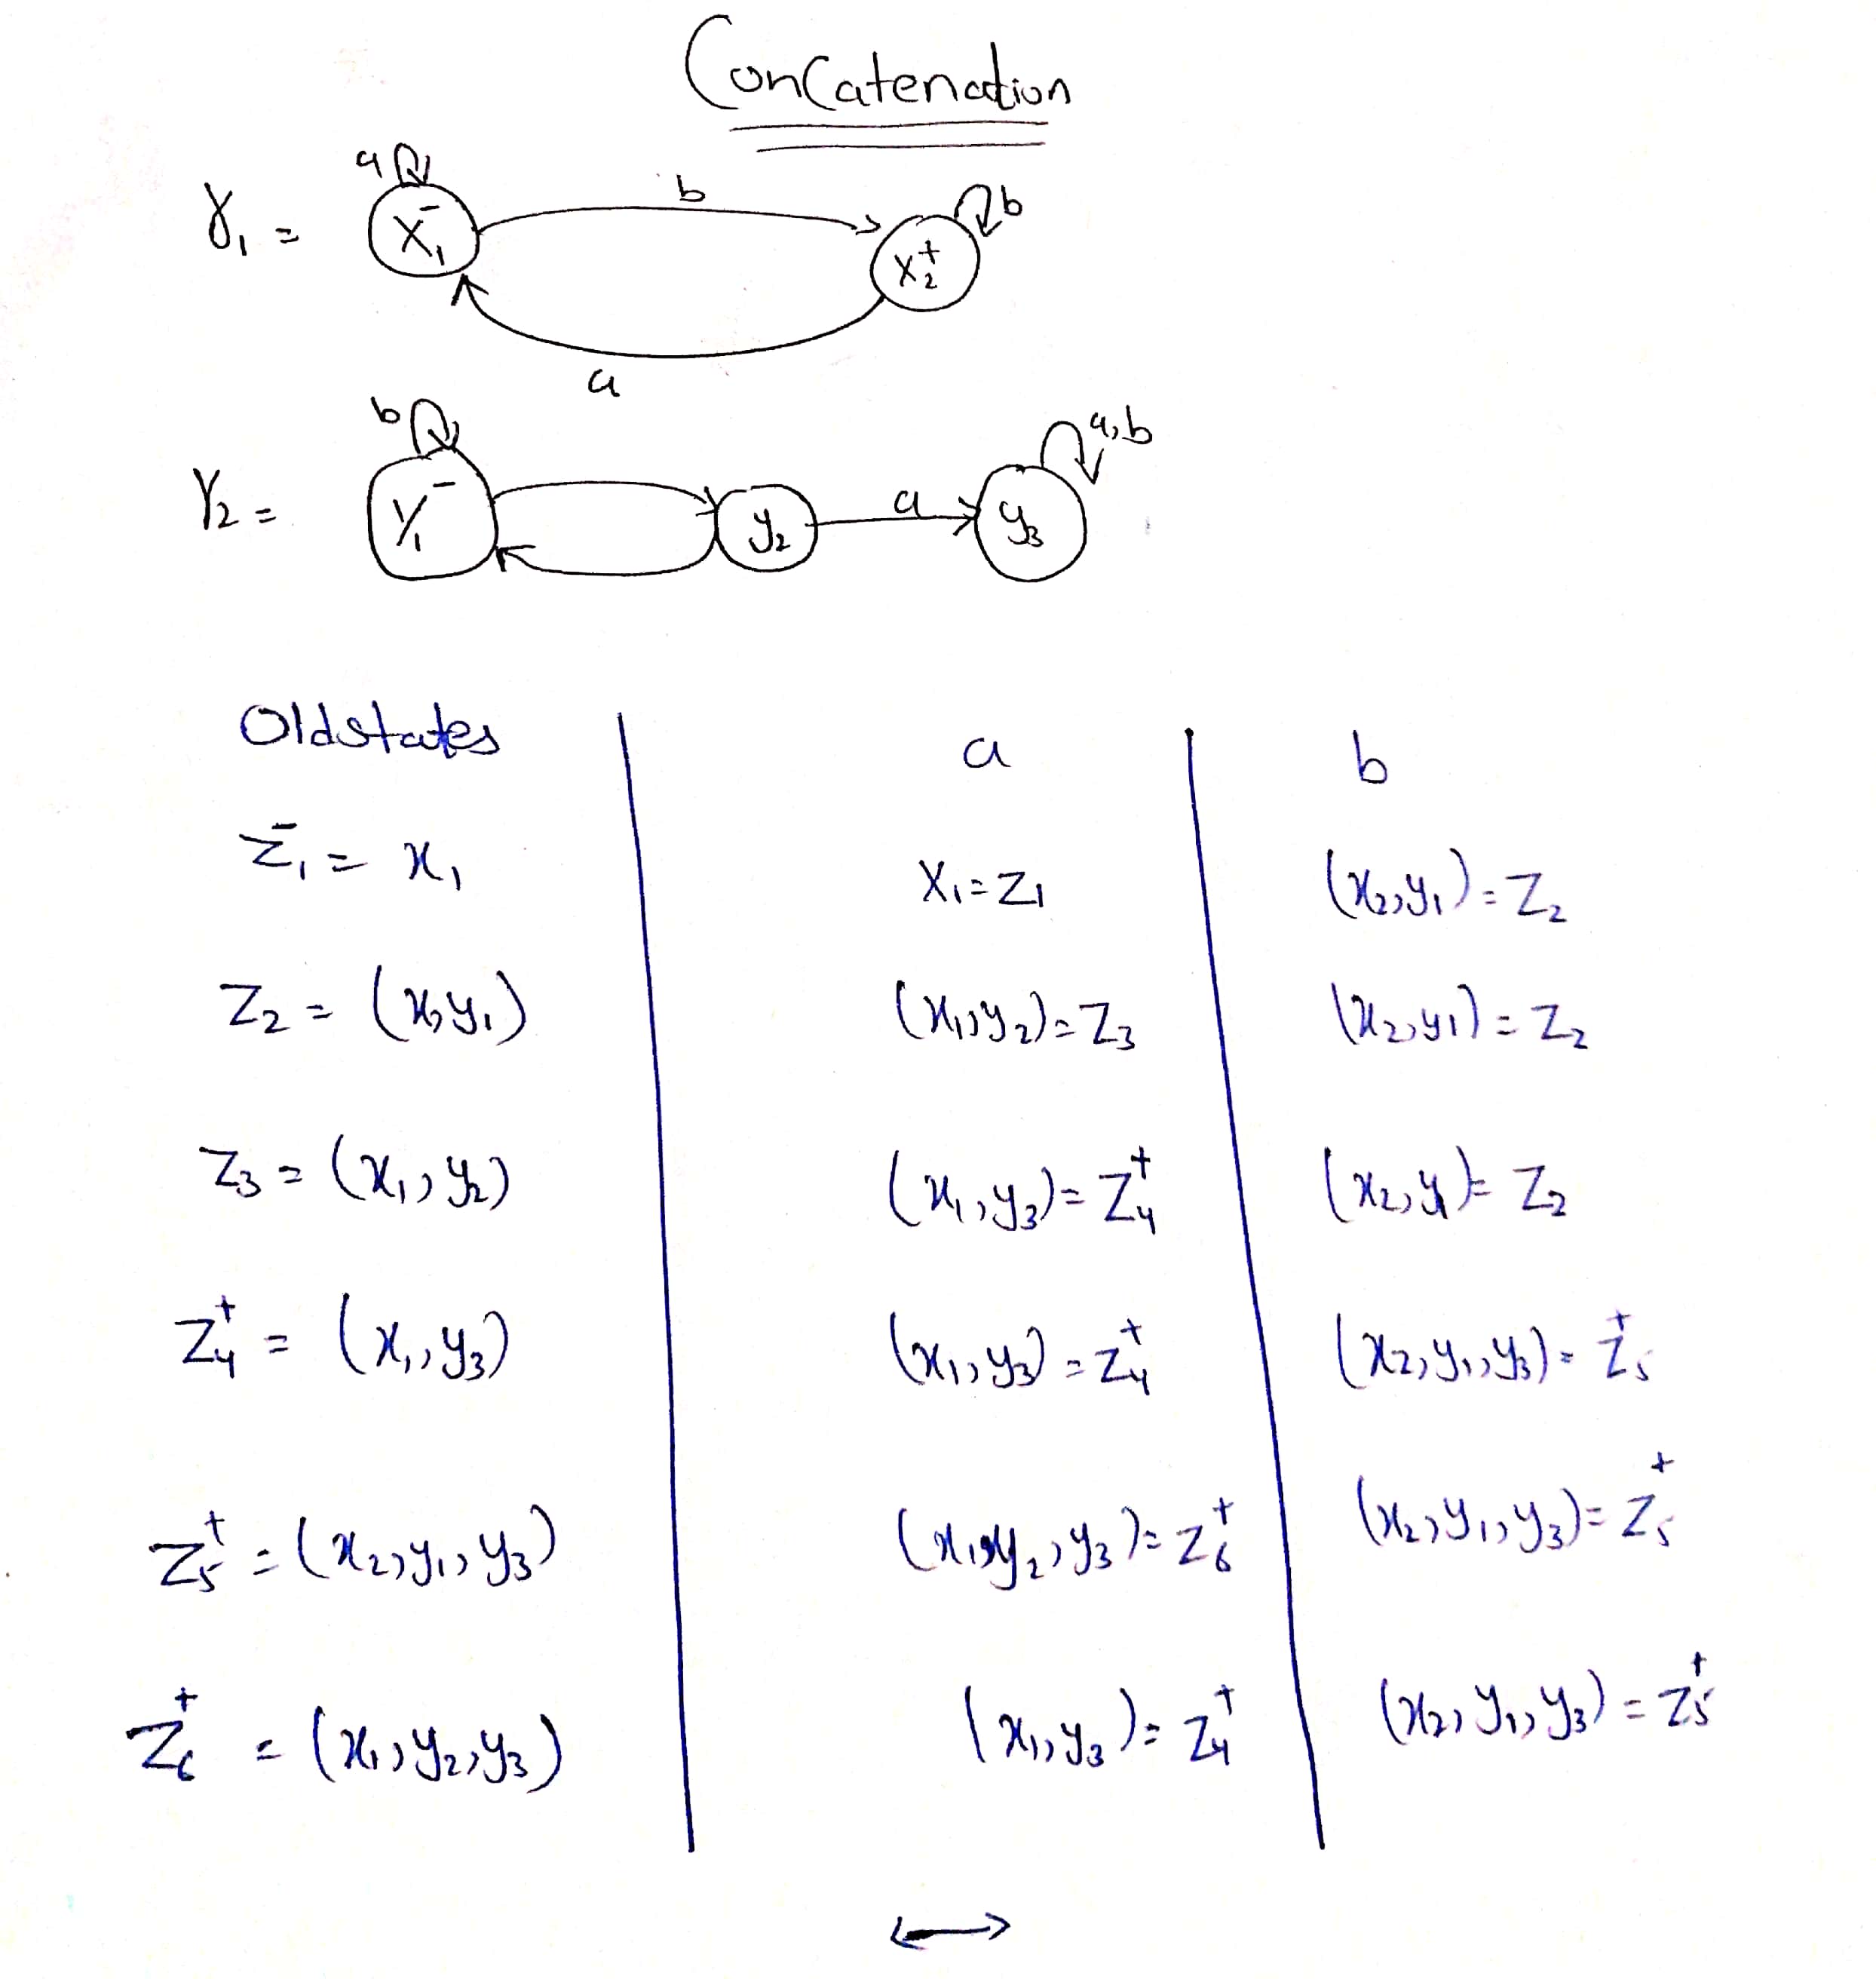 Concatenation
a
b
b
γ₁ =
X₁⁻
x₂⁺
a
b
a,b
γ₂ =
y₁⁻
y₂
a
y₃
Oldstates
a
b
Z₁⁻ = x₁
X₁=Z₁
(x₂,y₁)=Z₂
Z₂ = (x₂y₁)
(x₁,y₂)=Z₃
(x₂,y₁)=Z₂
Z₃ = (x₁,y₂)
(x₁,y₃)=Z₄⁺
(x₂,y₁)=Z₂
Z₄⁺ = (x₁,y₃)
(x₁,y₃)=Z₄⁺
(x₂,y₁,y₃)=Z₅⁺
Z₅⁺ = (x₂,y₁,y₃)
(x₁,y₂,y₃)=Z₆⁺
(x₂,y₁,y₃)=Z₅⁺
Z₆⁺ = (x₁,y₂,y₃)
(x₁,y₃)=Z₄⁺
(x₂,y₁,y₃)=Z₅⁺